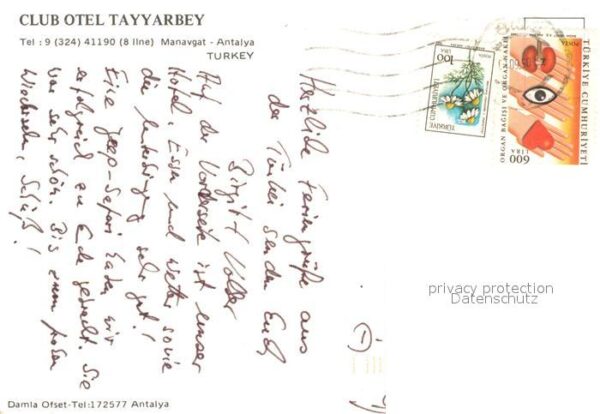 CLUB OTEL TAYYARBEY
Tel : 9 (324) 41190 (8 line) Manavgat - Antalya
TURKEY
Herzliche Feriengrüße aus
der Türkei senden Euch
Birgit Volker
Auf der Vorderseite ist unser
Hotel. Essen und Wetter sowie
die Unterbringung sehr gut!
Eine Jeep-Safari haben wir
erfolgreich zu Ende gebracht. Sie
war sehr schön. Bis zum
Wiedersehen, Tschüß!
100
LIRA
TÜRKİYE CUMHURİYETİ
TÜRKİYE CUMHURİYETİ
POSTA
ORGAN BAĞIŞI VE ORGAN NAKLİ
600
LIRA
privacy protection
Datenschutz
Damla Ofset-Tel:172577 Antalya